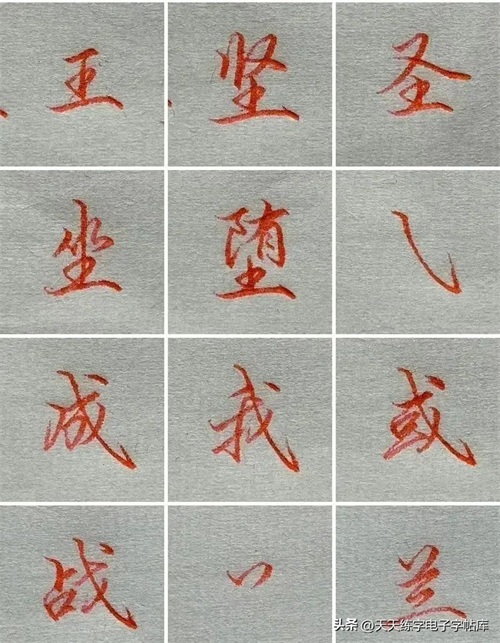 王 坚 圣
坐 堕 ㇂
成 我 或
战 丷 兰
头条 @天天练字电子字帖库